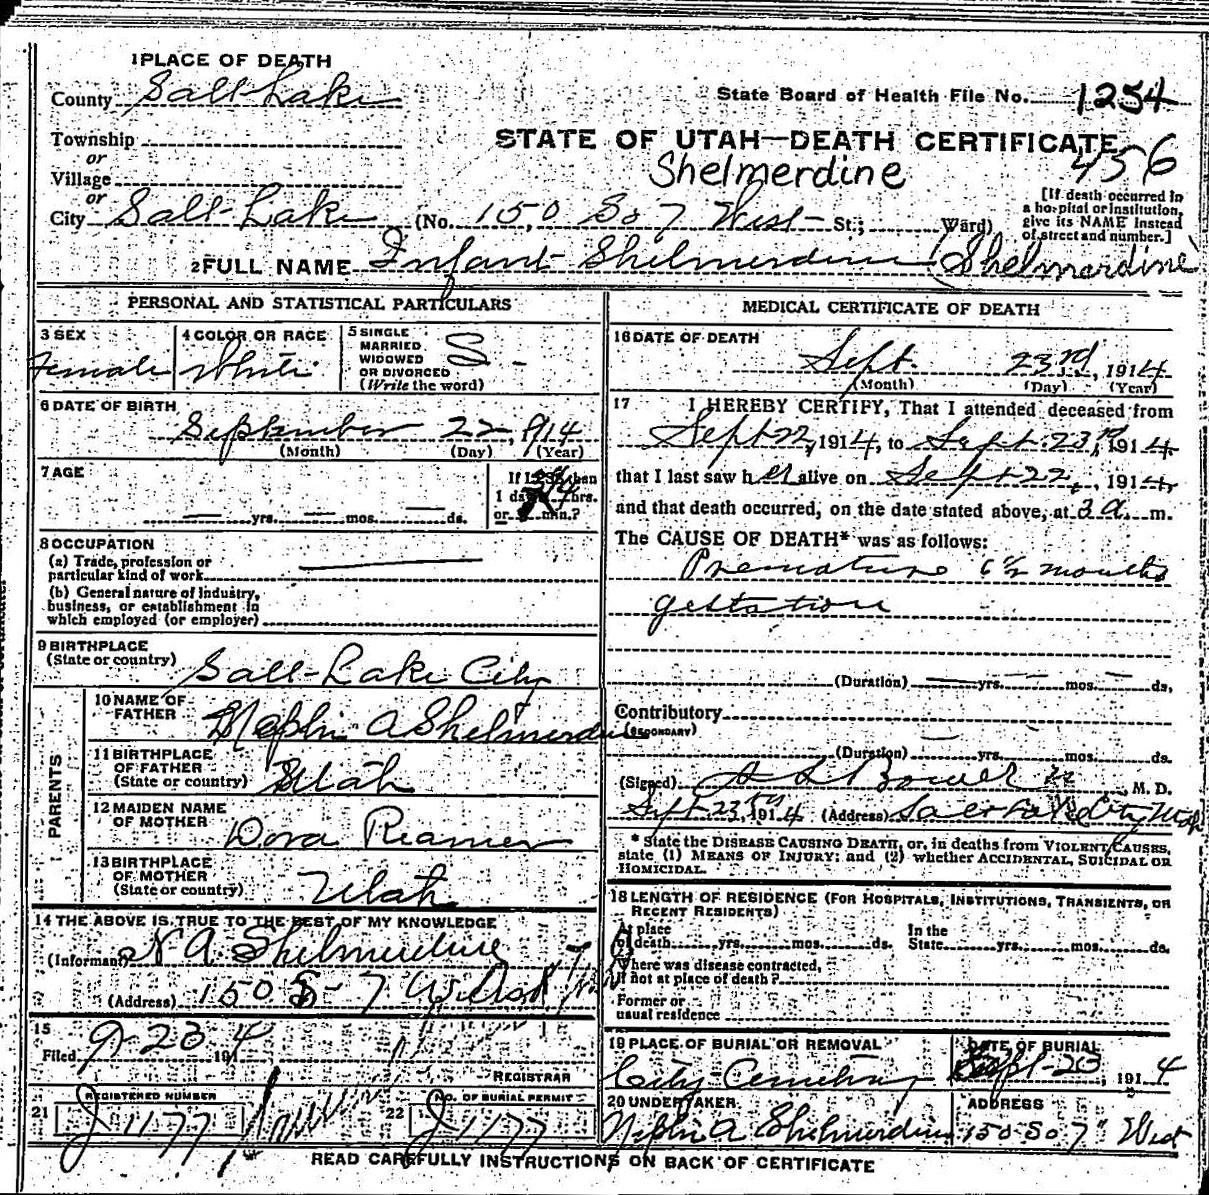 1 PLACE OF DEATH
County Salt Lake
State Board of Health File No. 1254
Township
or
Village
or
STATE OF UTAH—DEATH CERTIFICATE
456
Shelmerdine
City Salt Lake (No. 150 So 7 West St.; Ward)
[If death occurred in
a hospital or institution,
give its NAME instead
of street and number.]
2 FULL NAME Infant Shelmerdine (Shelmerdine)
PERSONAL AND STATISTICAL PARTICULARS
3 SEX
Female
4 COLOR OR RACE
White
5 SINGLE
MARRIED
WIDOWED
OR DIVORCED
(Write the word)
S -
6 DATE OF BIRTH
September 22, 1914
(Month) (Day) (Year)
7 AGE
— yrs. — mos. — ds.
If LESS than
1 day hrs.
or min.?
8 OCCUPATION
(a) Trade, profession or
particular kind of work
(b) General nature of industry,
business, or establishment in
which employed (or employer)
9 BIRTHPLACE
(State or country) Salt Lake City
PARENTS
10 NAME OF
FATHER Nephi A Shelmerdine
11 BIRTHPLACE
OF FATHER
(State or country) Utah
12 MAIDEN NAME
OF MOTHER Dora Reamer
13 BIRTHPLACE
OF MOTHER
(State or country) Utah
14 THE ABOVE IS TRUE TO THE BEST OF MY KNOWLEDGE
(Informant) N A Shelmerdine
(Address) 150 S- 7 West
15
Filed 9-23 1914
REGISTRAR
REGISTERED NUMBER
21 J 1177
NO. OF BURIAL PERMIT
22 J 1177
MEDICAL CERTIFICATE OF DEATH
16 DATE OF DEATH
Sept. 23rd, 1914
(Month) (Day) (Year)
17 I HEREBY CERTIFY, That I attended deceased from
Sept 22, 1914, to Sept. 23rd, 1914.
that I last saw her alive on Sept 22, 1914,
and that death occurred, on the date stated above, at 3 a. m.
The CAUSE OF DEATH* was as follows:
Premature 6½ months
gestation
(Duration) — yrs. — mos. — ds.
Contributory
(SECONDARY)
(Duration) — yrs. mos. ds.
(Signed) Bower M. D.
Sept. 23, 1914 (Address) Salt Lake City Utah
* State the DISEASE CAUSING DEATH, or, in deaths from VIOLENT CAUSES,
state (1) MEANS OF INJURY; and (2) whether ACCIDENTAL, SUICIDAL OR
HOMICIDAL.
18 LENGTH OF RESIDENCE (FOR HOSPITALS, INSTITUTIONS, TRANSIENTS, OR
RECENT RESIDENTS)
At place
of death yrs. mos. ds.
In the
State yrs. mos. ds.
Where was disease contracted,
if not at place of death?
Former or
usual residence
19 PLACE OF BURIAL OR REMOVAL
City Cemetery
DATE OF BURIAL
Sept-23, 1914
20 UNDERTAKER
Nephi A Shelmerdine
ADDRESS
150 So 7" West
READ CAREFULLY INSTRUCTIONS ON BACK OF CERTIFICATE